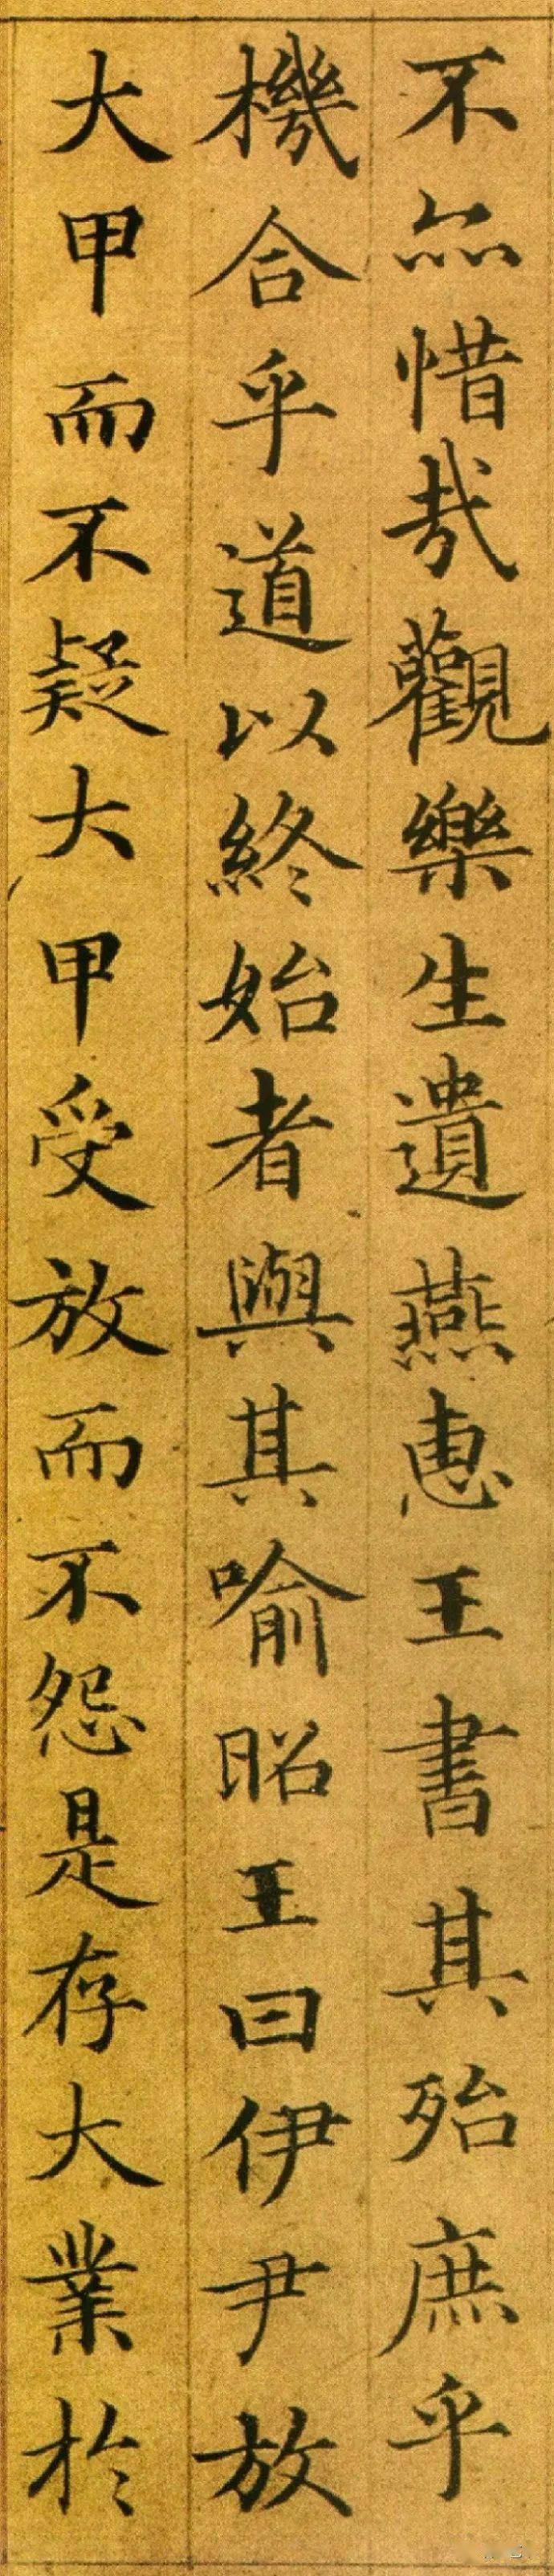 不亦惜哉觀樂生遺燕惠王書其殆庶乎
機合乎道以終始者與其喻昭王曰伊尹放
大甲而不疑大甲受放而不怨是存大業於